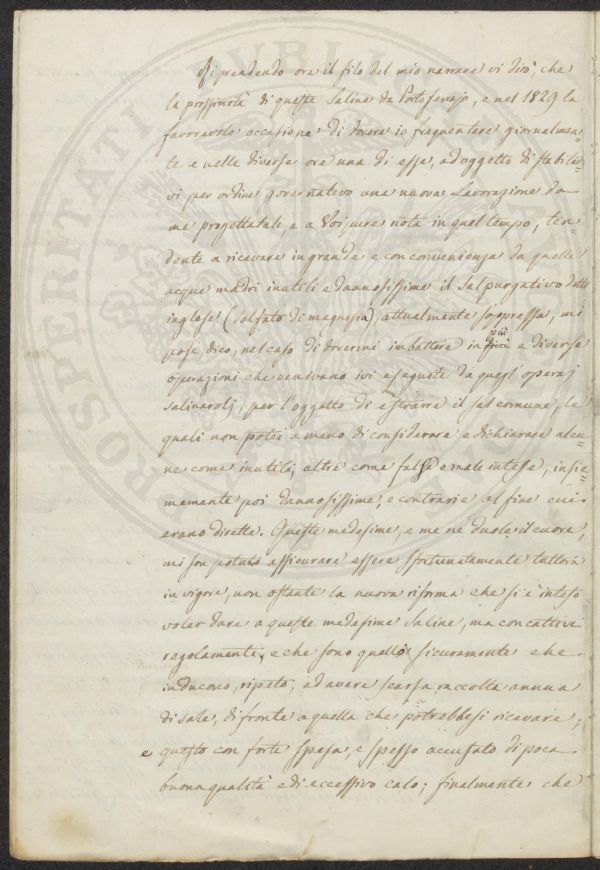 Riprendendo ora il filo del mio narrare vi dirò, che
la prossimità di queste Saline da Portoferrajo, e nel 1829 la
favorevole occasione di dovere io frequentare giornalmen=
te e nelle diverse ore una di esse, ad oggetto di stabilir=
vi per ordine governativo una nuova Lavorazione da
me progettatali, e a Voi pure nota in quel tempo, ten=
dente a ricavare in grande e con convenienza da quelle
acque madri inutili e dannosissime il Sal purgativo detto
inglese (Solfato di magnesia), attualmente soppressa, mi
pose, dico, nel caso di dovermi imbattere in più e diverse
operazioni che venivano ivi eseguite da quegl'operaj
salinarolj, per l'oggetto di estrarre il sal comune, le
quali non potei a meno di considerare e dichiarare alcu=
ne come inutili; altre come false e male intese, insie=
memente poi dannosissime, e contrarie al fine cui
erano dirette. Queste medesime, e me ne duole il cuore,
mi son potuto assicurare essere sfortunatamente tuttora
in vigore, non ostante la nuova riforma che si è inteso
voler dare a queste medesime Saline, ma con cattivi
regolamenti, e che sono quelli sicuramente che
inducono, ripeto, ad avere scarsa raccolta annua
di sale, di fronte a quella che potrebbesi ricavare;
e questo con forte spesa, e spesso accusato di poca
buona qualità e di eccessivo calo; finalmente che
PROSPERITATI PVBLICAE AVG